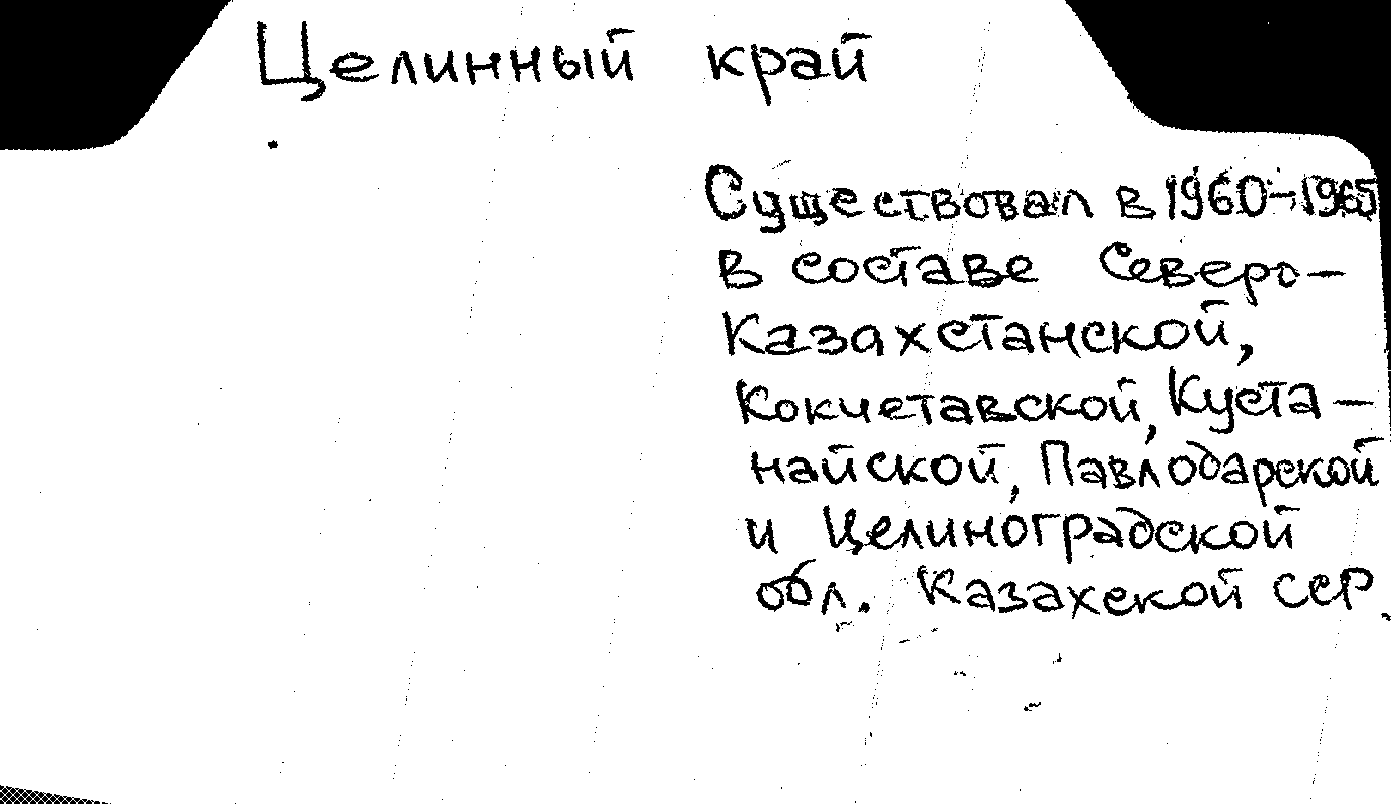 Целинный край
Существовал в 1960-1965
в составе Северо-
Казахстанской,
Кокчетавской, Куста-
найской, Павлодарской
и Целиноградской
обл. Казахской ССР.